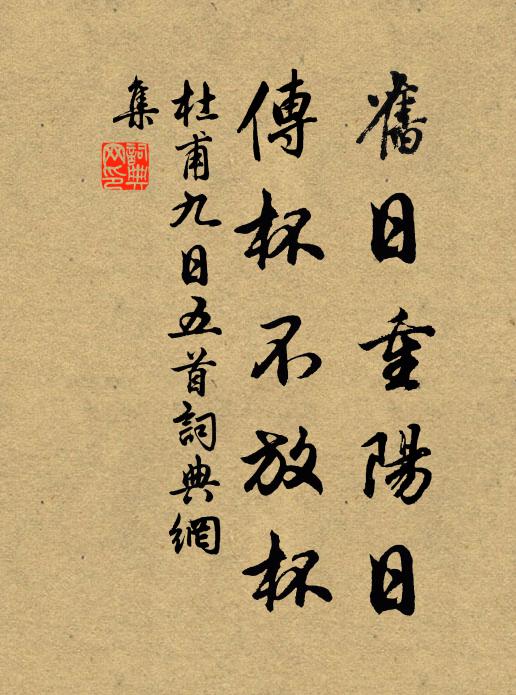 舊日重陽日
傳杯不放杯
杜甫九日五首詞典網
集
詞典網印